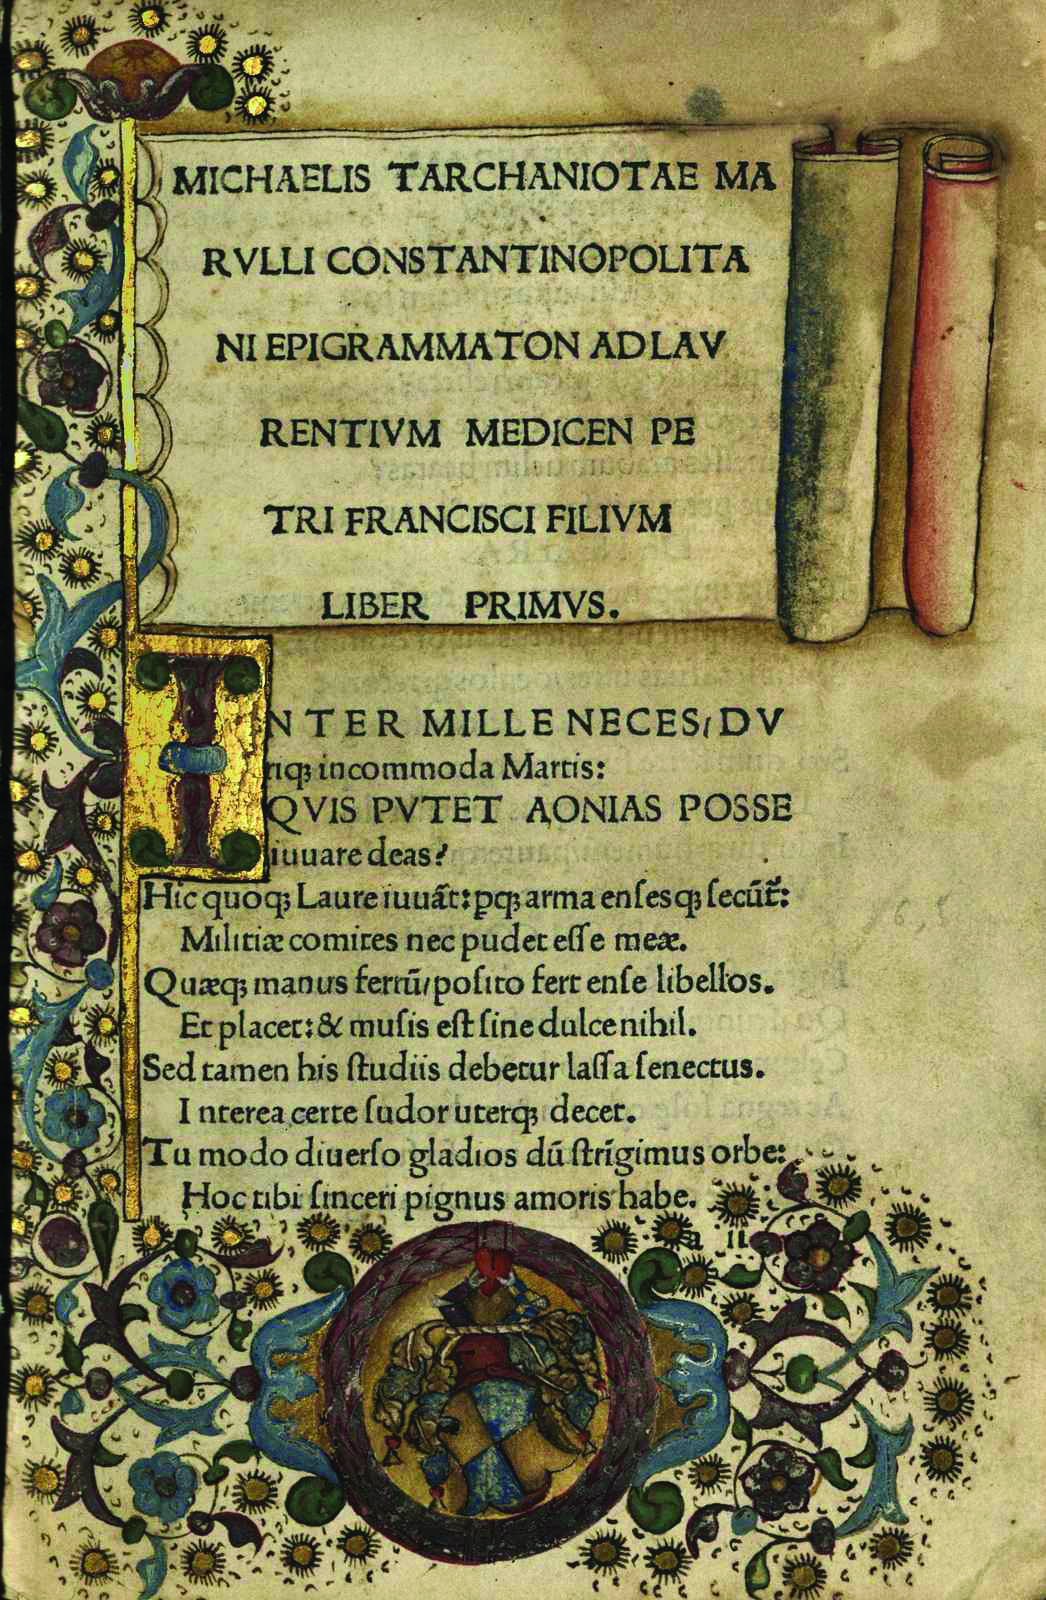 MICHAELIS TARCHANIOTAE MA
RVLLI CONSTANTINOPOLITA
NI EPIGRAMMATON AD LAV
RENTIVM MEDICEN PE
TRI FRANCISCI FILIVM
LIBER PRIMVS.
INTER MILLE NECES/DV
riqꝫ incommoda Martis:
QVIS PVTET AONIAS POSSE
iuuare deas?
Hic quoqꝫ Laure iuuãt: ꝑqꝫ arma enſesqꝫ ſecũt᷑:
Militiæ comites nec pudet eſſe meæ.
Quæqꝫ manus ferrũ/poſito fert enſe libellos.
Et placet: & muſis eſt ſine dulce nihil.
Sed tamen his ſtudiis debetur laſſa ſenectus.
Interea certe ſudor uterqꝫ decet.
Tu modo diuerſo gladios dũ ſtrĩgimus orbe:
Hoc tibi ſinceri pignus amoris habe.
a ii